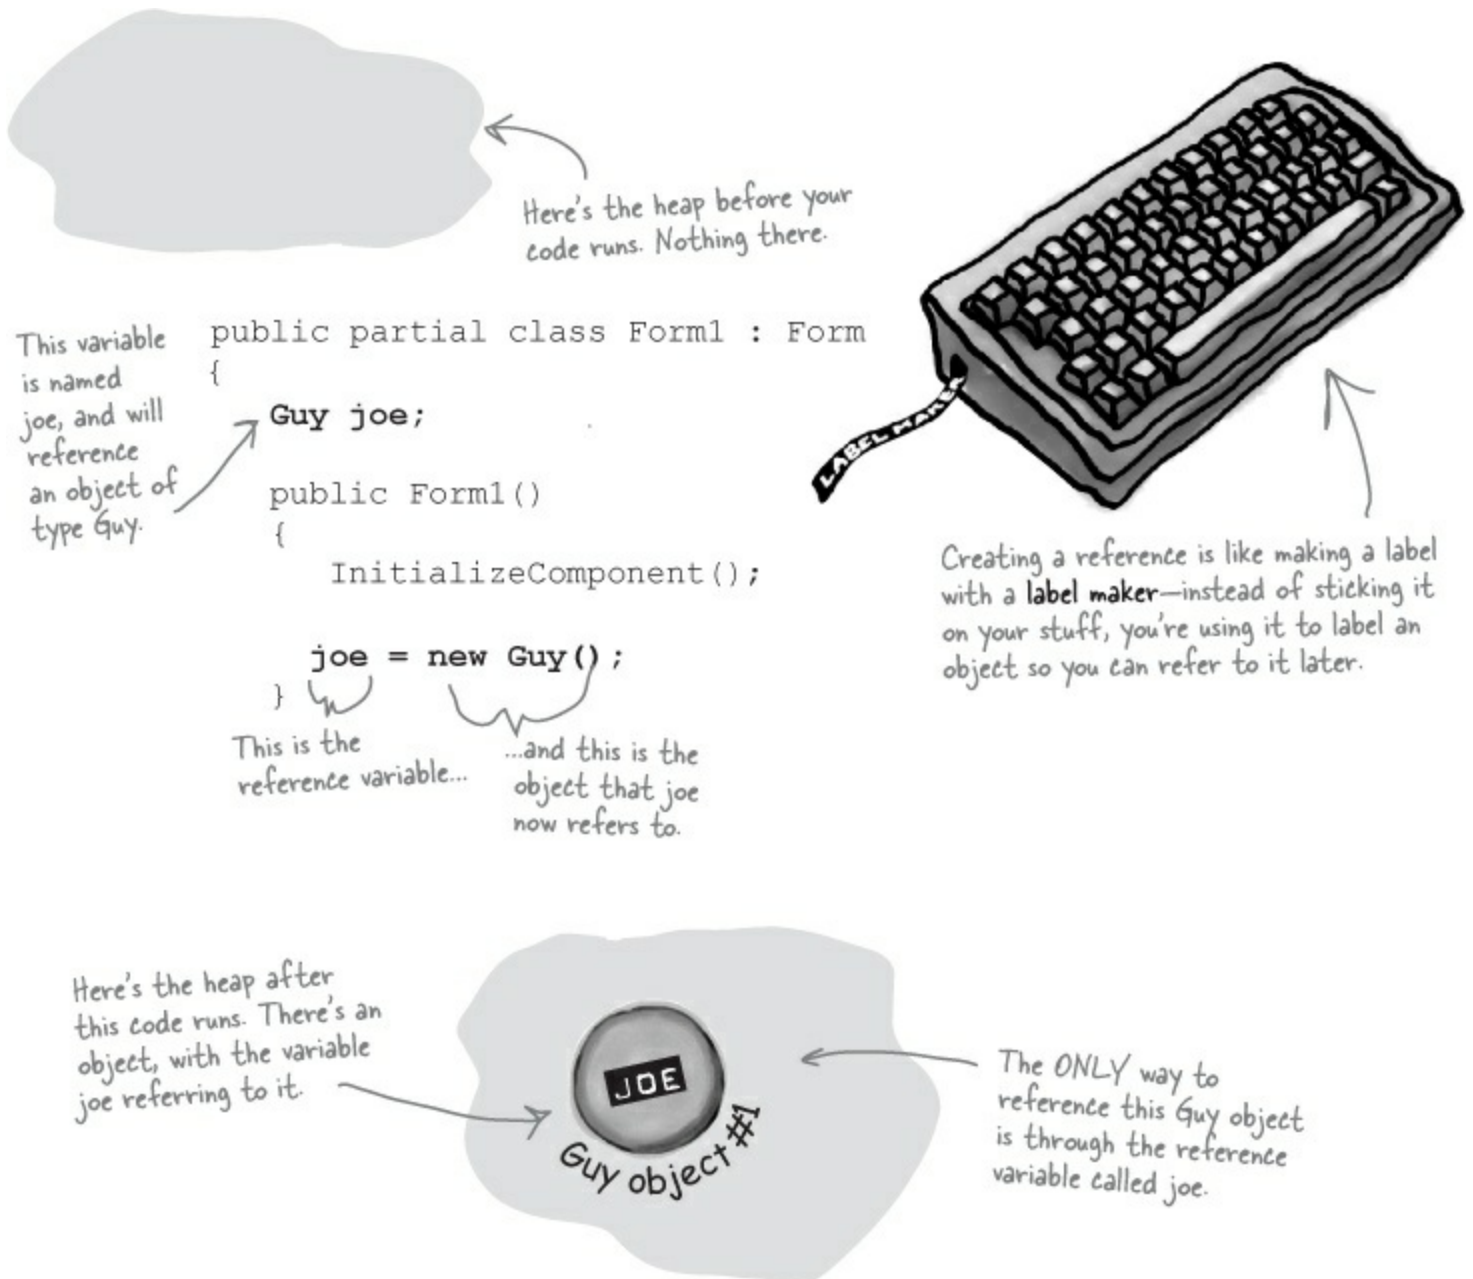 Here's the heap before your
code runs. Nothing there.
This variable
is named
joe, and will
reference
an object of
type Guy.
public partial class Form1 : Form
{
Guy joe;
public Form1()
{
InitializeComponent();
joe = new Guy();
}
This is the
reference variable...
...and this is the
object that joe
now refers to.
LABEL MAKE
Creating a reference is like making a label
with a label maker—instead of sticking it
on your stuff, you're using it to label an
object so you can refer to it later.
Here's the heap after
this code runs. There's an
object, with the variable
joe referring to it.
JOE
Guy object #1
The ONLY way to
reference this Guy object
is through the reference
variable called joe.